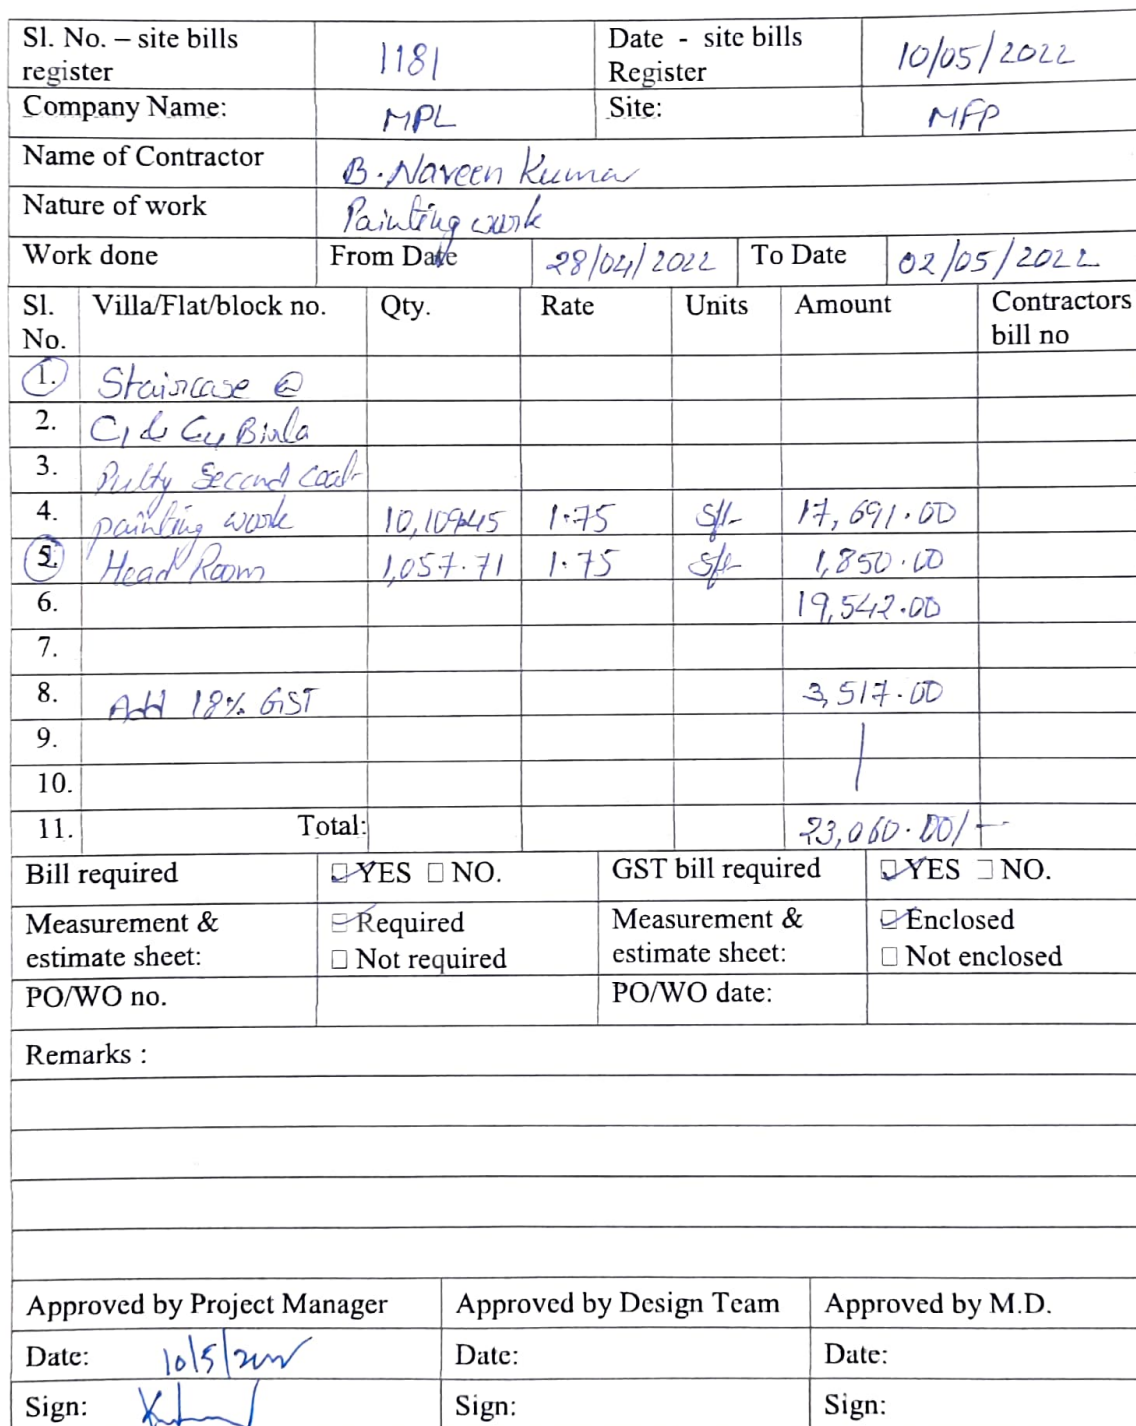 Sl. No. – site bills register 1181 Date - site bills Register 10/05/2022
Company Name: MPL Site: MFP
Name of Contractor B. Naveen Kumar
Nature of work Painting work
Work done From Date 28/04/2022 To Date 02/05/2022
Sl. No. Villa/Flat/block no. Qty. Rate Units Amount Contractors bill no
1. Staircase @
2. C1 & C4 Birla
3. Putty Second coat
4. painting work 10,109.45 1.75 sft 17,691.00
5. Head Room 1,057.71 1.75 sft 1,850.00
6. 19,542.00
7.
8. Add 18% GST 3,517.00
9.
10.
11. Total: 23,060.00/-
Bill required YES NO. GST bill required YES NO.
Measurement & estimate sheet: Required Not required Measurement & estimate sheet: Enclosed Not enclosed
PO/WO no. PO/WO date:
Remarks :
Approved by Project Manager Approved by Design Team Approved by M.D.
Date: 10/5/2022 Date: Date:
Sign: Sign: Sign: